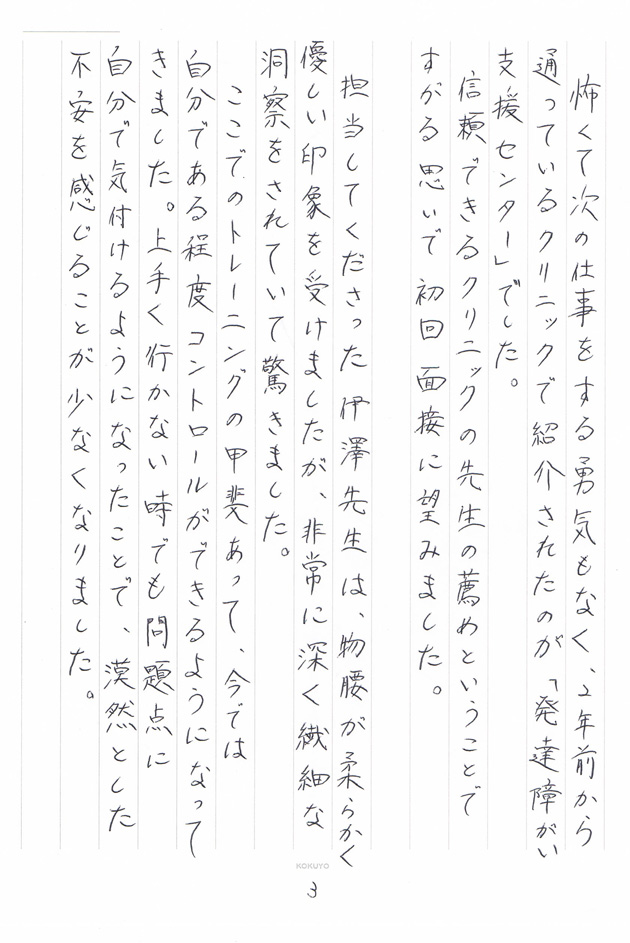 怖くて次の仕事をする勇気もなく、2年前から
通っているクリニックで紹介されたのが「発達障がい
支援センター」でした。
信頼できるクリニックの先生の薦めということで
すがる思いで初回面接に望みました。
担当してくださった伊澤先生は、物腰が柔らかく
優しい印象を受けましたが、非常に深く繊細な
洞察をされていて驚きました。
ここでのトレーニングの甲斐あって、今では
自分である程度コントロールができるようになって
きました。上手く行かない時でも問題点に
自分で気付けるようになったことで、漠然とした
不安を感じることが少なくなりました。
KOKUYO
3